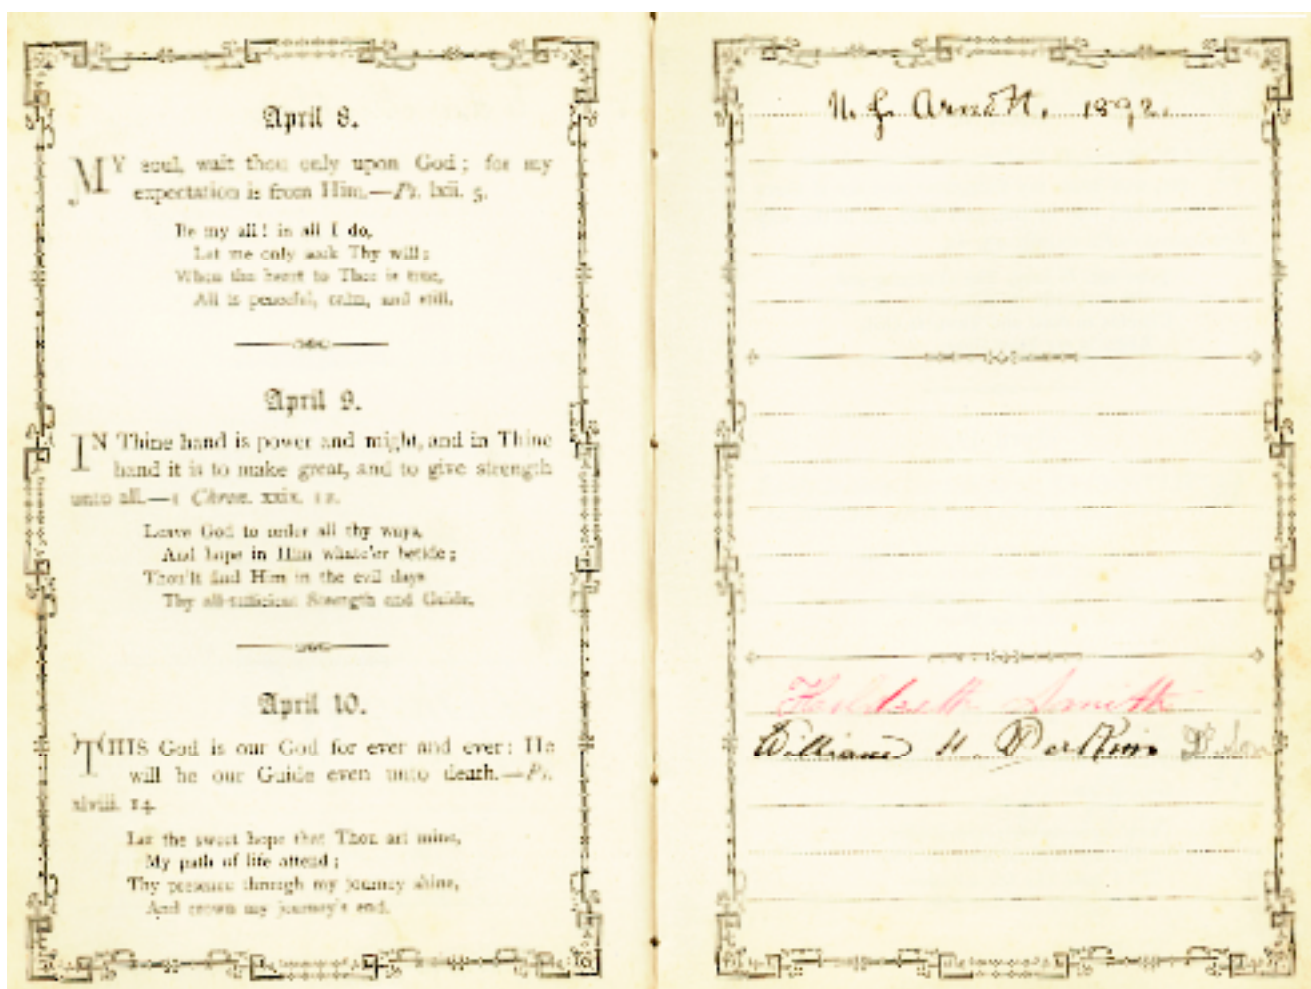 April 8.
MY soul, wait thou only upon God; for my
expectation is from Him.—Ps. lxii. 5.
Be my all! in all I do,
Let me only seek Thy will;
When the heart to Thee is true,
All is peaceful, calm, and still.
April 9.
IN Thine hand is power and might, and in Thine
hand it is to make great, and to give strength
unto all.—1 Chron. xxix. 12.
Leave God to order all thy ways,
And hope in Him whate'er betide;
Thou'lt find Him in the evil days
Thy all-sufficient Strength and Guide.
April 10.
THIS God is our God for ever and ever: He
will be our Guide even unto death.—Ps.
xlviii. 14.
Let the sweet hope that Thou art mine,
My path of life attend;
Thy presence through my journey shine,
And crown my journey's end.
Arnett. 1892.
Smith
William H. Perkins